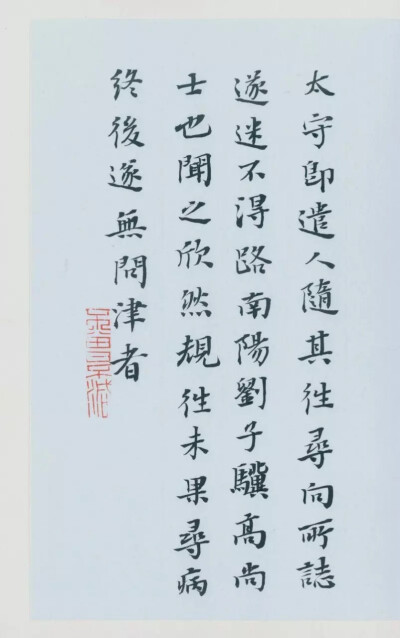 太守即遣人隨其往尋向所誌
遂迷不得路南陽劉子驥高尚
士也聞之欣然規往未果尋病
終後遂無問津者